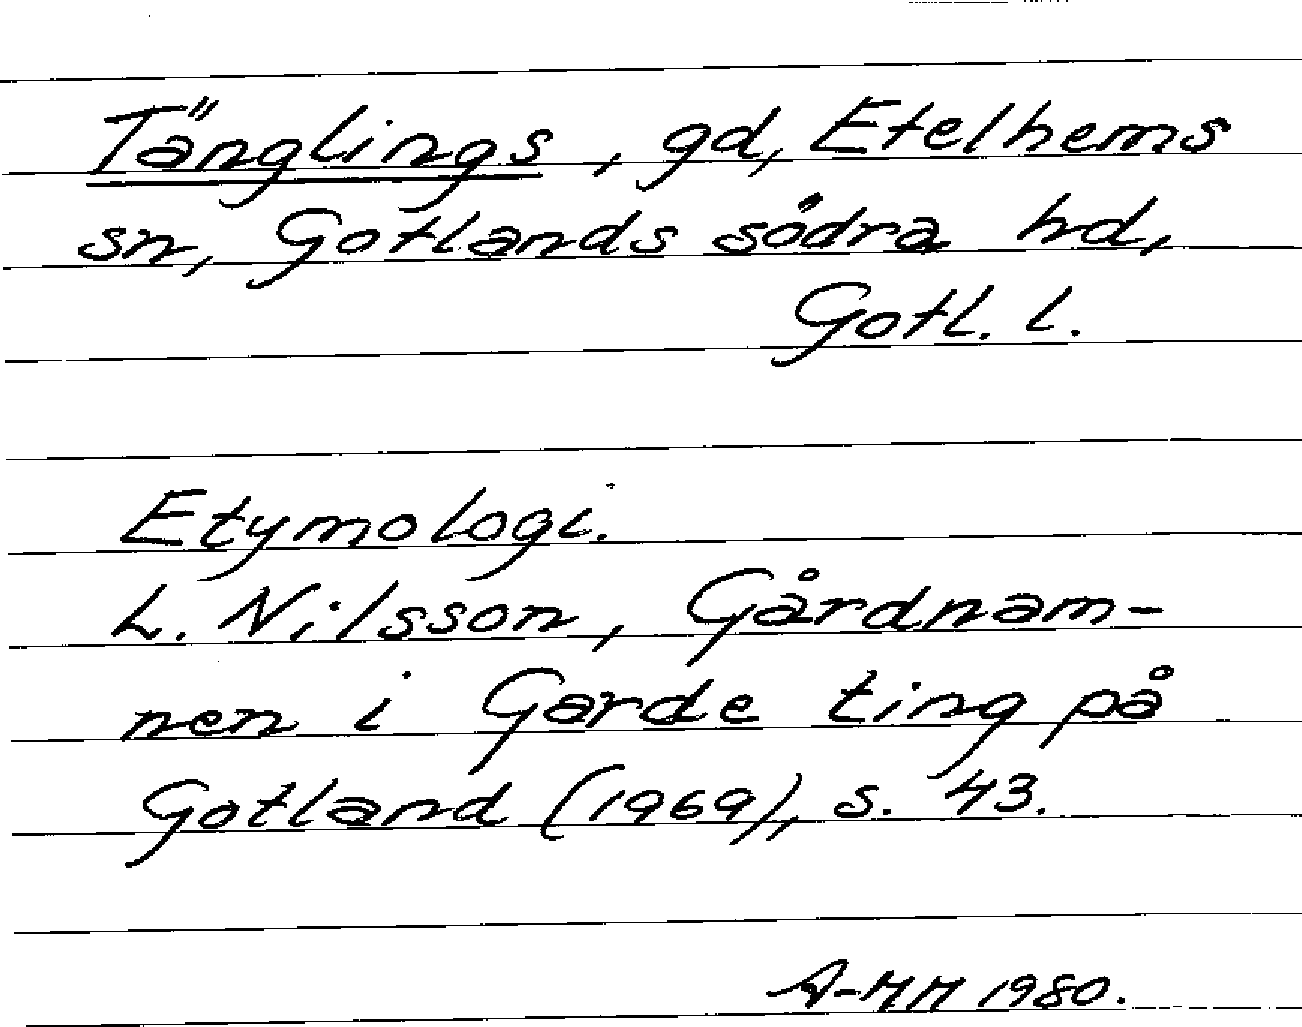 Tänglings, gd, Etelhems
sn, Gotlands södra hd,
Gotl. l.
Etymologi.
L. Nilsson, Gårdnam-
nen i Garde ting på
Gotland (1969), s. 43.
A-MH 1980.